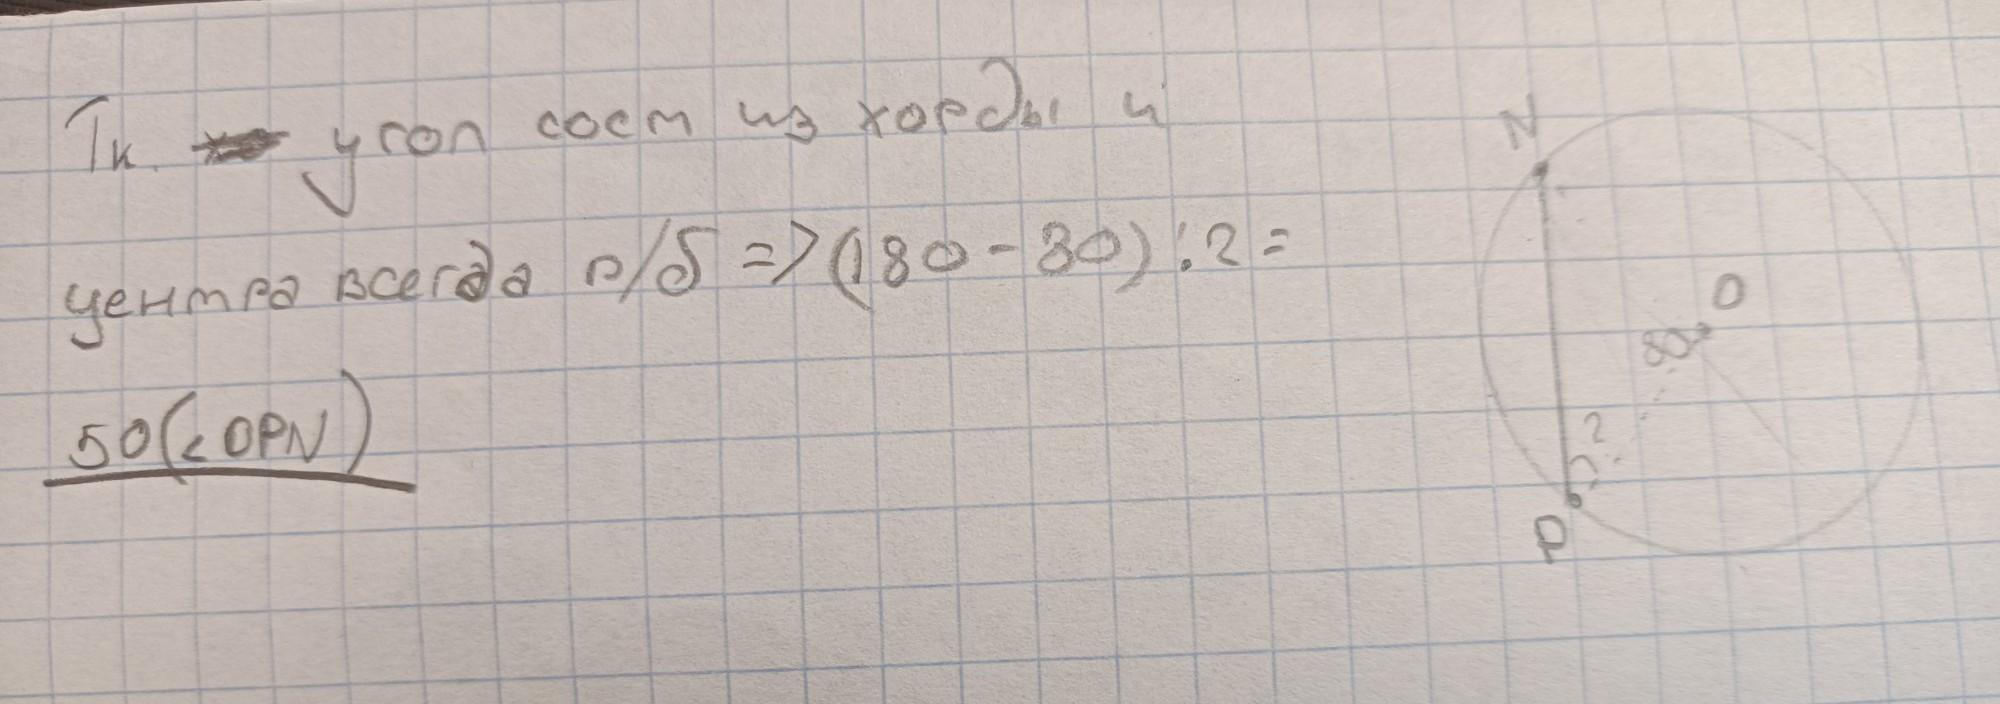 Тк. угол сост из хорды и
центра всегда р/б => (180-80):2=
50(<OPN)
N
O
80
?
P